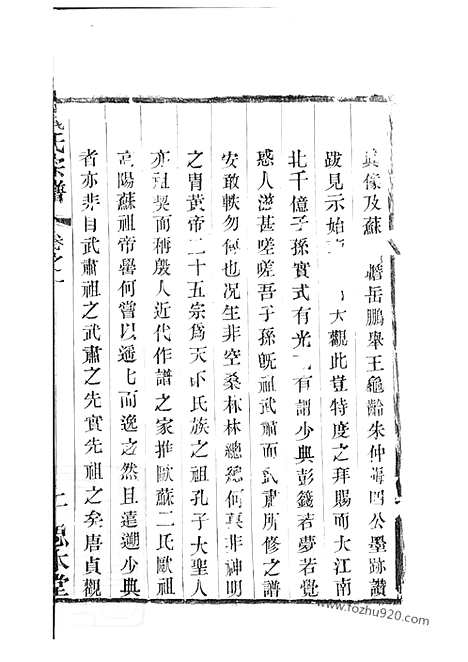 真像及蘇 岳鵬舉王龜齡朱仲晦四公墨跡讚
跋見示始 大觀此豈特度之拜賜而大江南
北千億子孫實式有光 有謂少典彭籛若夢若覺
惑人滋甚嗟嗟吾子孫旣祖武肅而武肅所修之譜
安敢軼勿傳也况生非空桑林林總總何莫非神明
之胄黃帝二十五宗爲天下氏族之祖孔子大聖人
亦祖契而稱殷人近代作譜之家推歐蘇二氏歐祖
高陽蘇祖帝嚳何嘗以遥七而逸之然且遠遡少典
者亦非自武肅祖之武肅之先實先祖之矣唐貞觀
氏宗譜
卷之一
堂
www.fozhu920.com